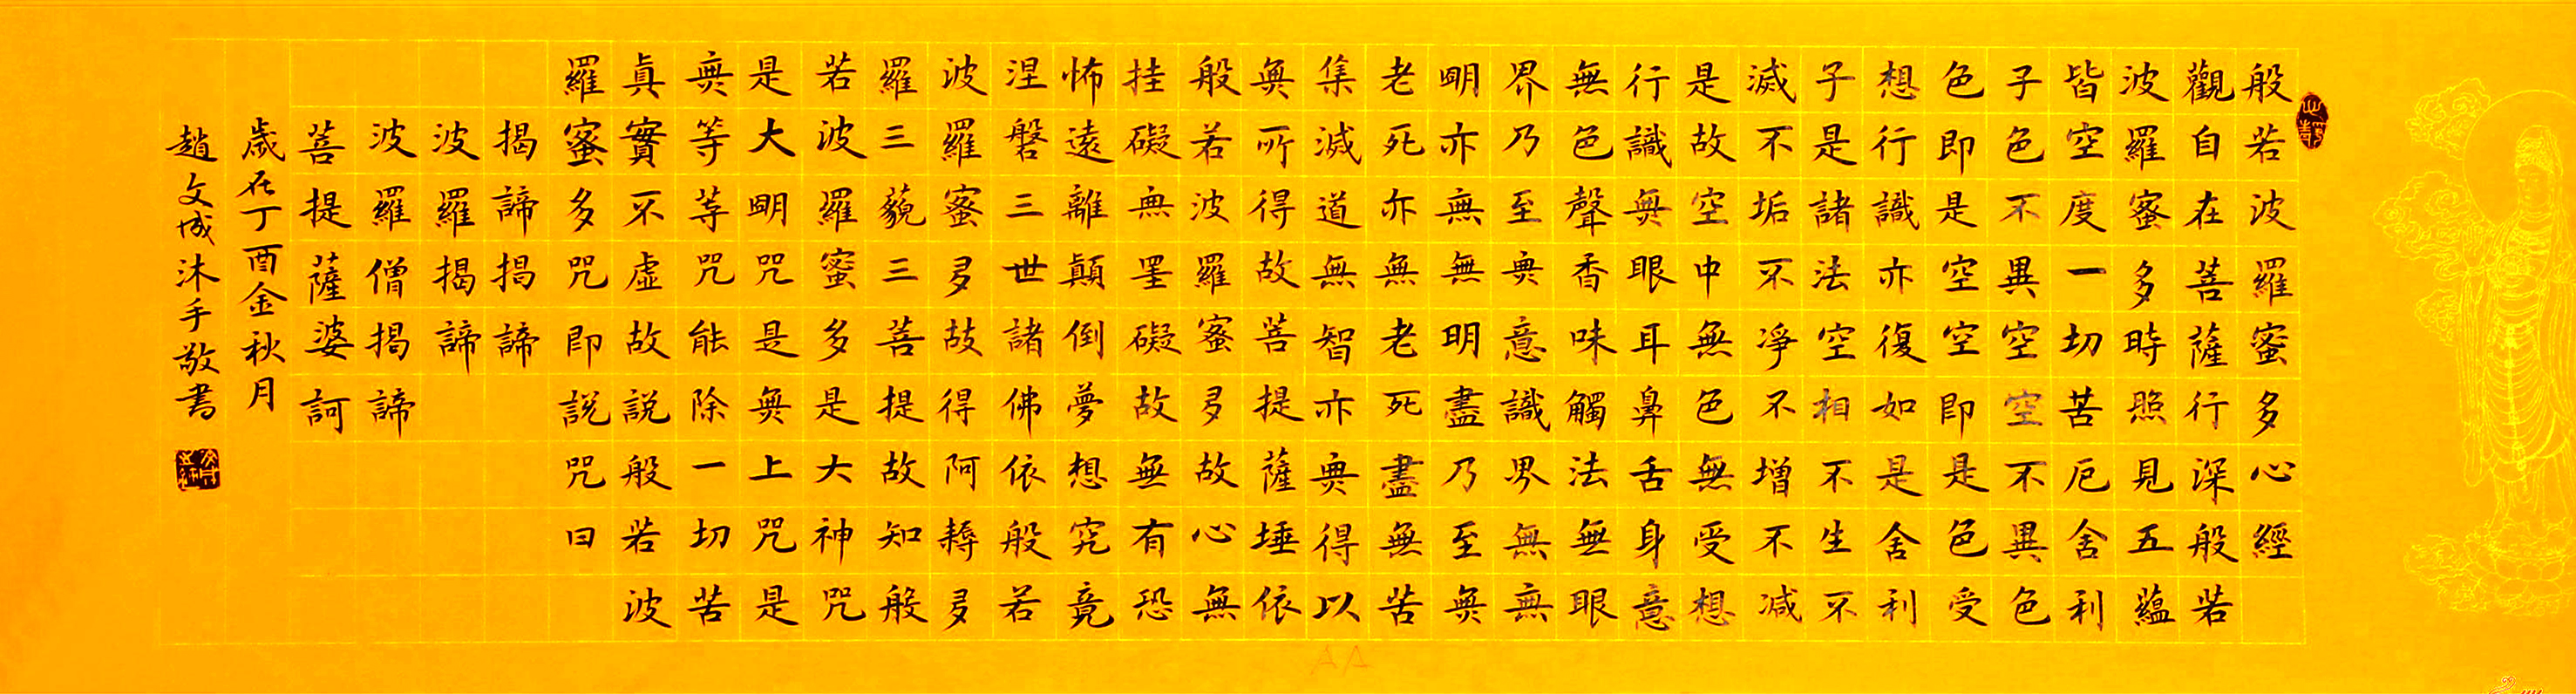 般若波羅蜜多心經
觀自在菩薩行深般若
波羅蜜多時照見五蘊
皆空度一切苦厄舍利
子色不異空空不異色
色即是空空即是色受
想行識亦復如是舍利
子是諸法空相不生不
滅不垢不淨不增不減
是故空中無色無受想
行識無眼耳鼻舌身意
無色聲香味觸法無眼
界乃至無意識界無無
明亦無無明盡乃至無
老死亦無老死盡無苦
集滅道無智亦無得以
無所得故菩提薩埵依
般若波羅蜜多故心無
挂礙無罣礙故無有恐
怖遠離顛倒夢想究竟
涅磐三世諸佛依般若
波羅蜜多故得阿耨多
羅三藐三菩提故知般
若波羅蜜多是大神咒
是大明咒是無上咒是
無等等咒能除一切苦
真實不虛故說般若波
羅蜜多咒即說咒曰
揭諦揭諦
波羅揭諦
波羅僧揭諦
菩提薩婆訶
歲在丁酉金秋月
趙文成沐手敬書